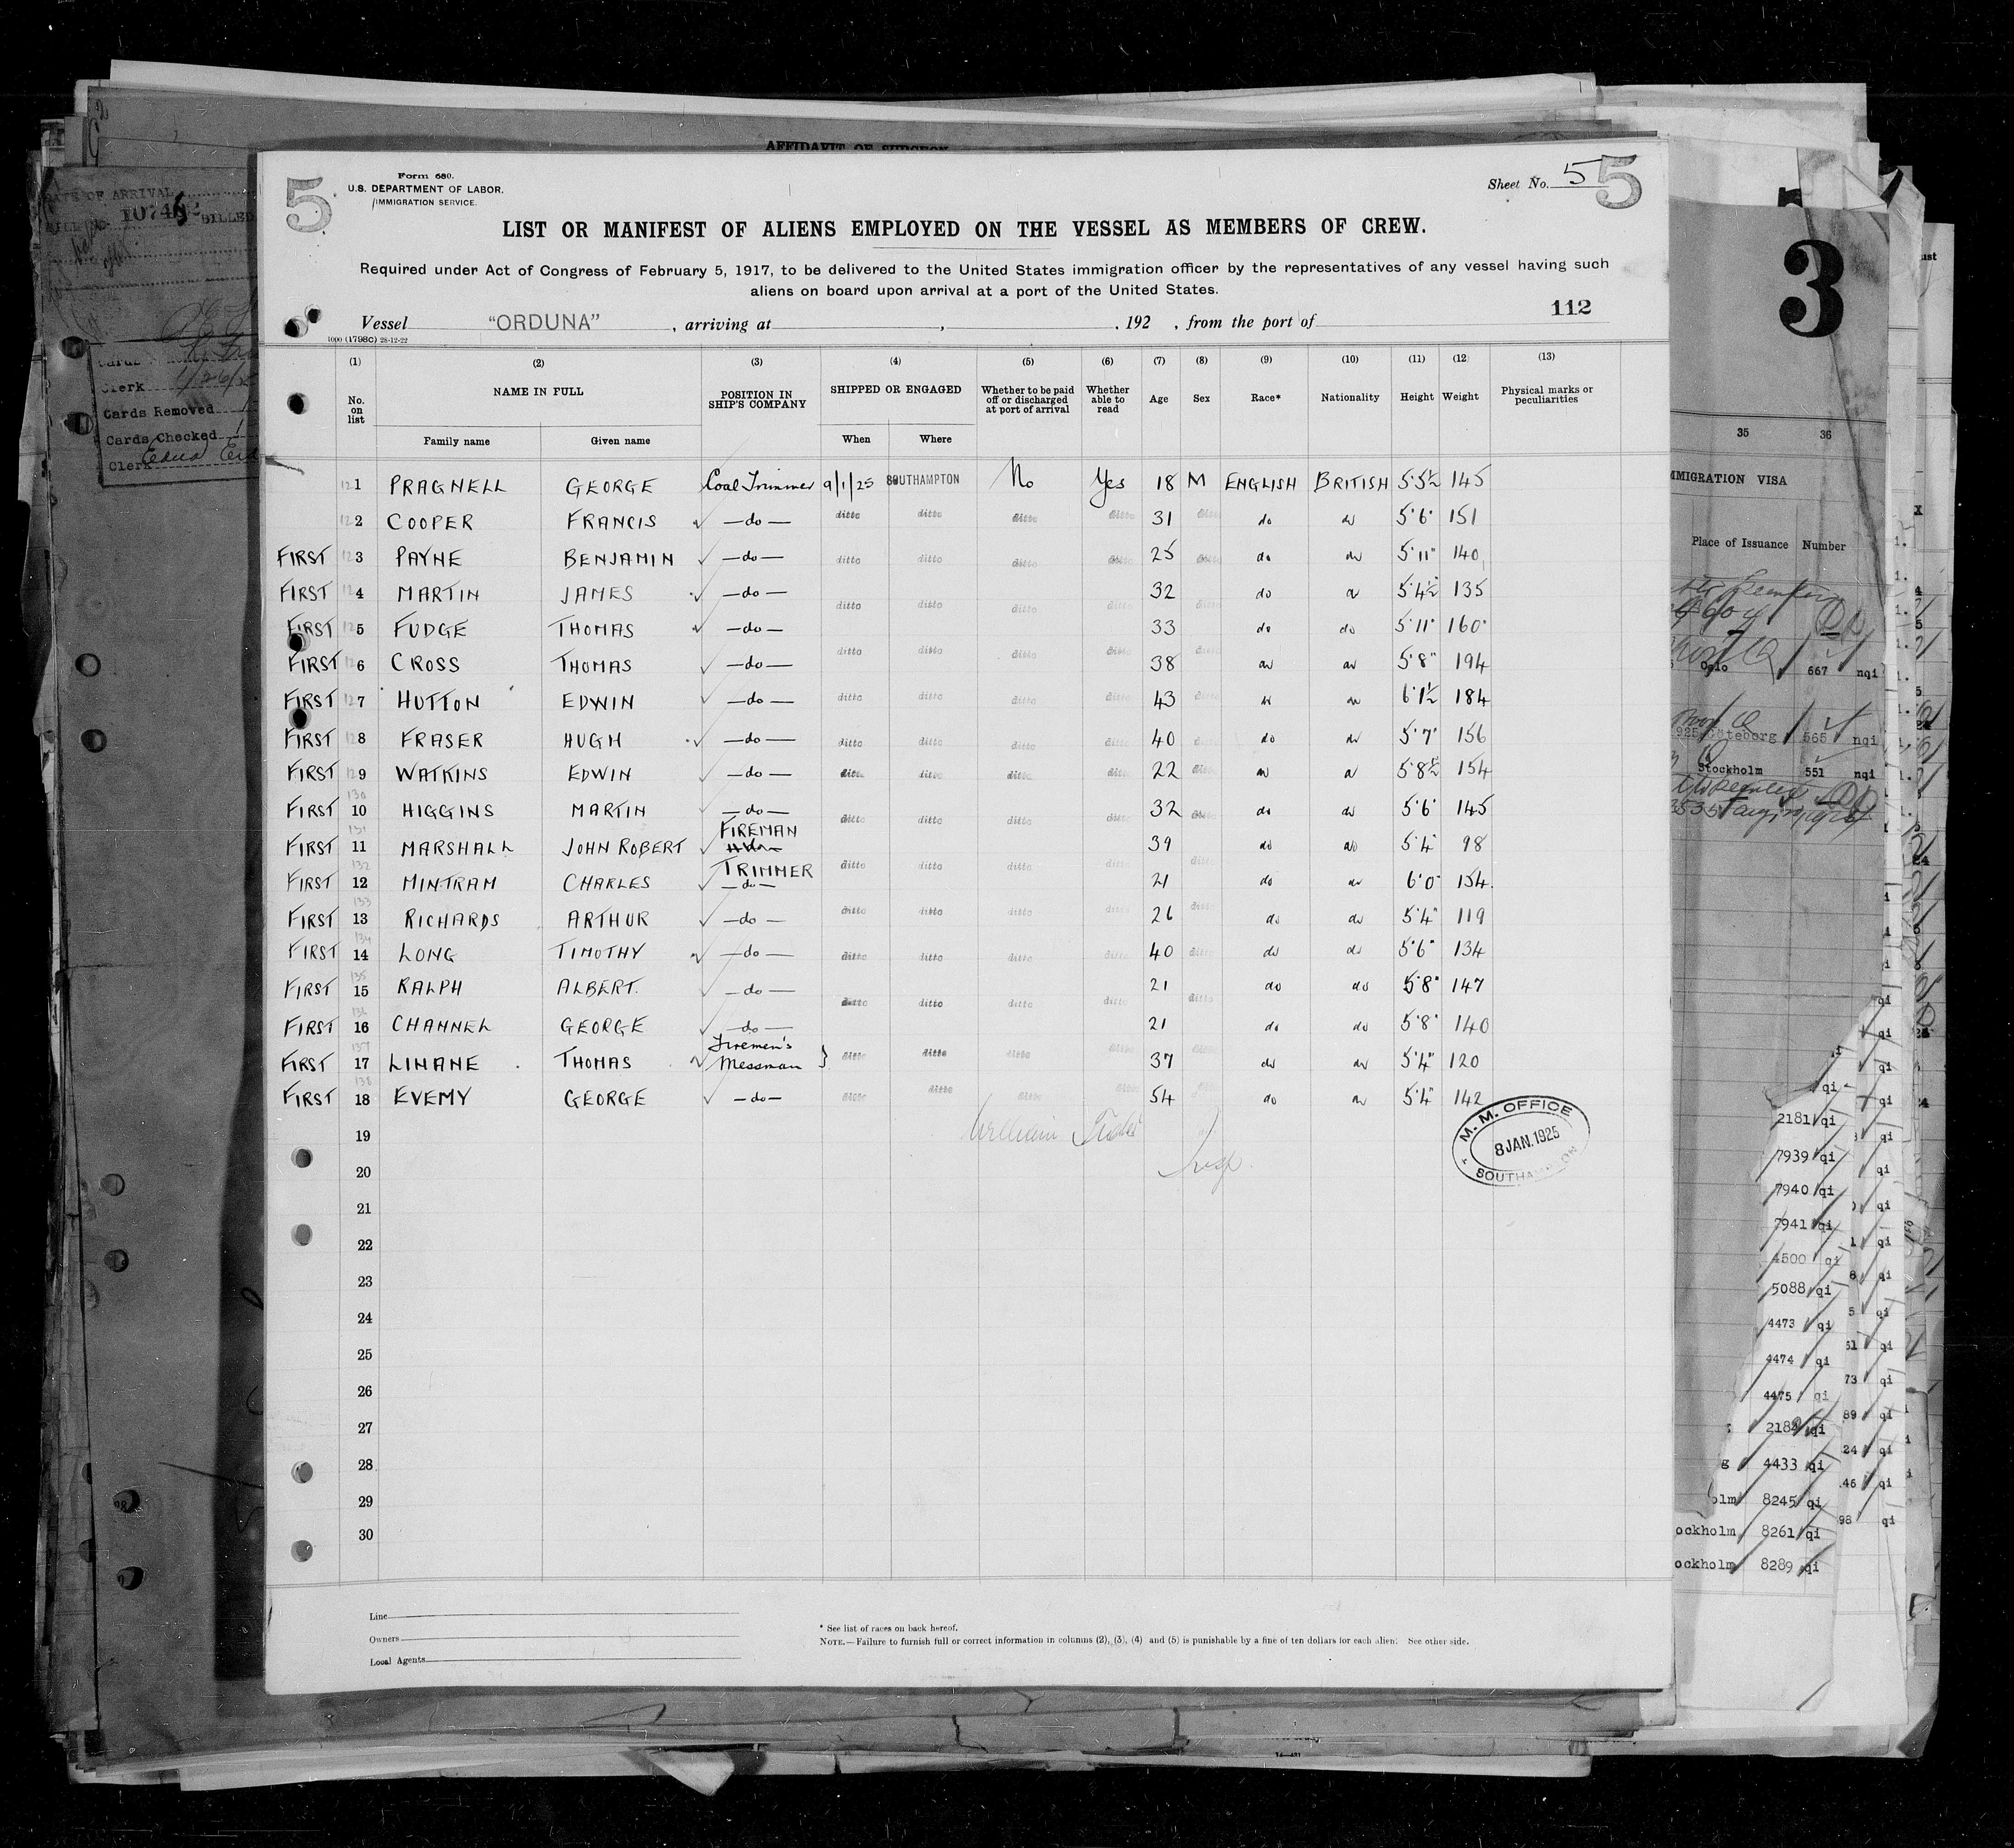 AFFIDAVIT OF SURGEON
5
Form 680.
U.S. DEPARTMENT OF LABOR.
IMMIGRATION SERVICE.
Sheet No. 5 5
LIST OR MANIFEST OF ALIENS EMPLOYED ON THE VESSEL AS MEMBERS OF CREW.
Required under Act of Congress of February 5, 1917, to be delivered to the United States immigration officer by the representatives of any vessel having such
aliens on board upon arrival at a port of the United States.
112
Vessel "ORDUNA", arriving at , , 192 , from the port of
1000 (1798C) 28-12-22
(1) (2) (3) (4) (5) (6) (7) (8) (9) (10) (11) (12) (13)
No. on list NAME IN FULL POSITION IN SHIP'S COMPANY SHIPPED OR ENGAGED Whether to be paid off or discharged at port of arrival Whether able to read Age Sex Race* Nationality Height Weight Physical marks or peculiarities
Family name Given name When Where
1 PRAGNELL GEORGE Coal Trimmer 9/1/25 SOUTHAMPTON No Yes 18 M ENGLISH BRITISH 5'5½ 145
2 COOPER FRANCIS —do— ditto ditto ditto ditto 31 ditto do do 5'6" 151
FIRST 3 PAYNE BENJAMIN —do— ditto ditto ditto ditto 25 ditto do do 5'11" 140
FIRST 4 MARTIN JAMES —do— ditto ditto ditto ditto 32 ditto do do 5'4½" 135
FIRST 5 FUDGE THOMAS —do— 33 do do 5'11" 160
FIRST 6 CROSS THOMAS —do— ditto ditto ditto ditto 38 ditto do do 5'8" 194
FIRST 7 HUTTON EDWIN —do— ditto ditto ditto ditto 43 ditto do do 6'1½ 184
FIRST 8 FRASER HUGH —do— ditto ditto ditto ditto 40 ditto do do 5'7" 156
FIRST 9 WATKINS EDWIN —do— ditto ditto ditto ditto 22 ditto do do 5'8½ 154
130
FIRST 10 HIGGINS MARTIN —do— ditto ditto ditto ditto 32 ditto do do 5'6" 145
131 FIREMAN
FIRST 11 MARSHALL JOHN ROBERT 39 do do 5'4" 98
132 TRIMMER
FIRST 12 MINTRAM CHARLES —do— ditto ditto ditto ditto 21 ditto do do 6'0" 154
133
FIRST 13 RICHARDS ARTHUR —do— ditto ditto ditto ditto 26 ditto do do 5'4" 119
134
FIRST 14 LONG TIMOTHY —do— ditto ditto ditto ditto 40 ditto do do 5'6" 134
135
FIRST 15 RALPH ALBERT. —do— ditto ditto ditto ditto 21 ditto do do 5'8" 147
136
FIRST 16 CHANNEL GEORGE —do— 21 do do 5'8" 140
137 Firemen's
FIRST 17 LINANE THOMAS Messman } ditto ditto ditto ditto 37 ditto do do 5'4" 120
138
FIRST 18 EVEMY GEORGE —do— ditto ditto ditto ditto 54 do do 5'4" 142
19
20
21
22
23
24
25
26
27
28
29
30
William
M. M. OFFICE
8 JAN. 1925
SOUTHAMPTON
Line
Owners
Local Agents
* See list of races on back hereof.
NOTE.—Failure to furnish full or correct information in columns (2), (3), (4) and (5) is punishable by a fine of ten dollars for each alien. See other side.
DATE OF ARRIVAL
BILLED
Clerk
Cards Removed
Cards Checked
Clerk Edna
3
35 36
IMMIGRATION VISA
Place of Issuance Number
Oslo 667 nqi
925 Göteborg 565 nqi
Stockholm 551 nqi
2181 qi
7939 qi
7940 qi
7941 qi
4500 qi
5088 qi
4473 qi
4474 qi
4475 qi
2184 qi
4433 qi
olm 8245 qi
ockholm 8261 qi
ockholm 8289 qi